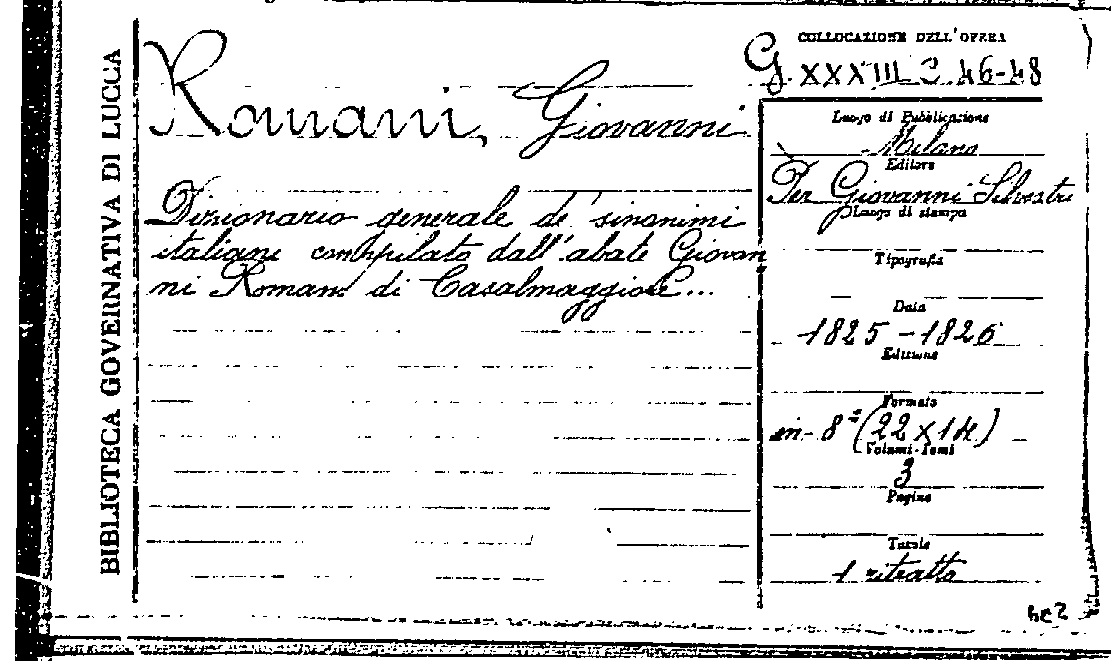 BIBLIOTECA GOVERNATIVA DI LUCCA
Romani, Giovanni
Dizionario generale de' sinonimi
italiani compilato dall'abate Giovan
ni Romani di Casalmaggiore...
COLLOCAZIONE DELL'OPERA
G. XXXIII C 46-48
Luogo di Pubblicazione
Milano
Editore
Per Giovanni Silvestri
Luogo di stampa
Tipografia
Data
1825-1826
Edizione
Formato
in-8° (22x14)
Volumi-Tomi
3
Pagine
Tavole
1 ritratto